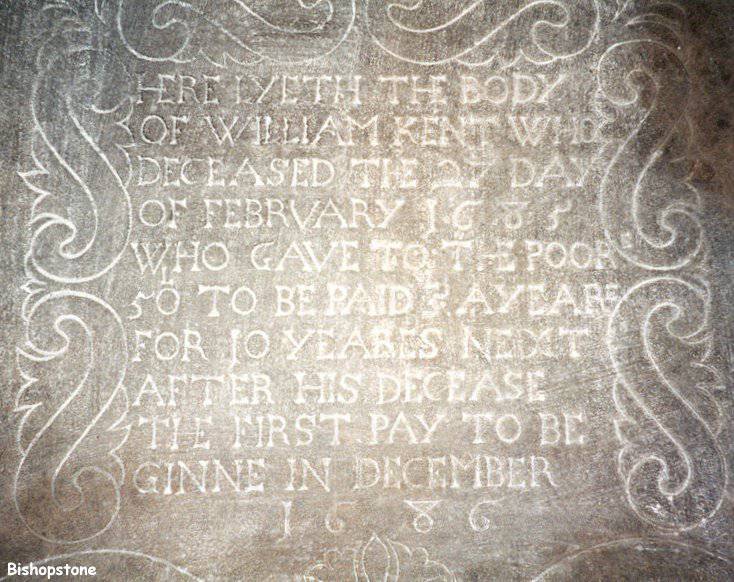 HERE LYETH THE BODY
OF WILLIAM KENT WHO
DECEASED THE 27 DAY
OF FEBRVARY 1685
WHO GAVE TO THE POOR
50 TO BE PAID 5 A YEARE
FOR 10 YEARES NEXT
AFTER HIS DECEASE
THE FIRST PAY TO BE
GINNE IN DECEMBER
1686
Bishopstone